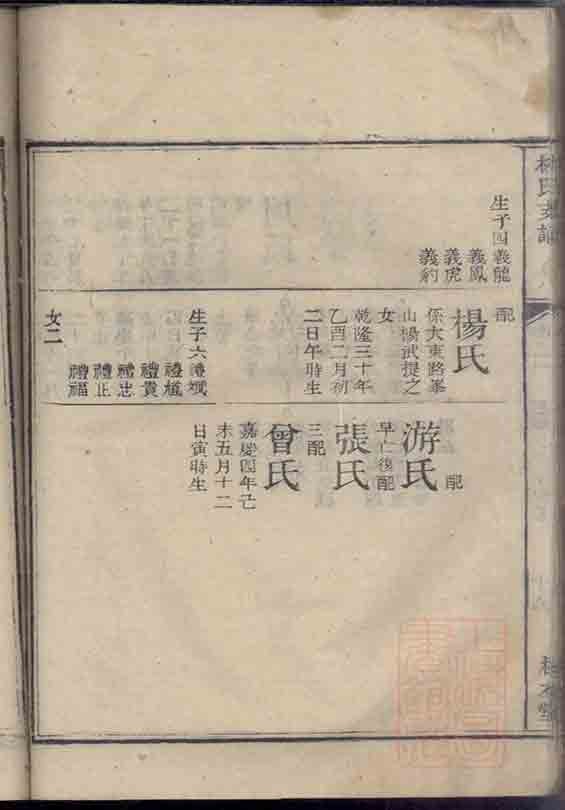 林氏支譜
生子四義龍
義鳳
義虎
義豹
配
楊氏
係大東路峯
山楊武提之
女
乾隆三十年
乙酉二月初
二日午時生
生子六禮斌
禮
禮貴
禮忠
禮正
禮福
女二
配
游氏
早亡復配
張氏
三配
曾氏
嘉慶四年己
未五月十二
日寅時生